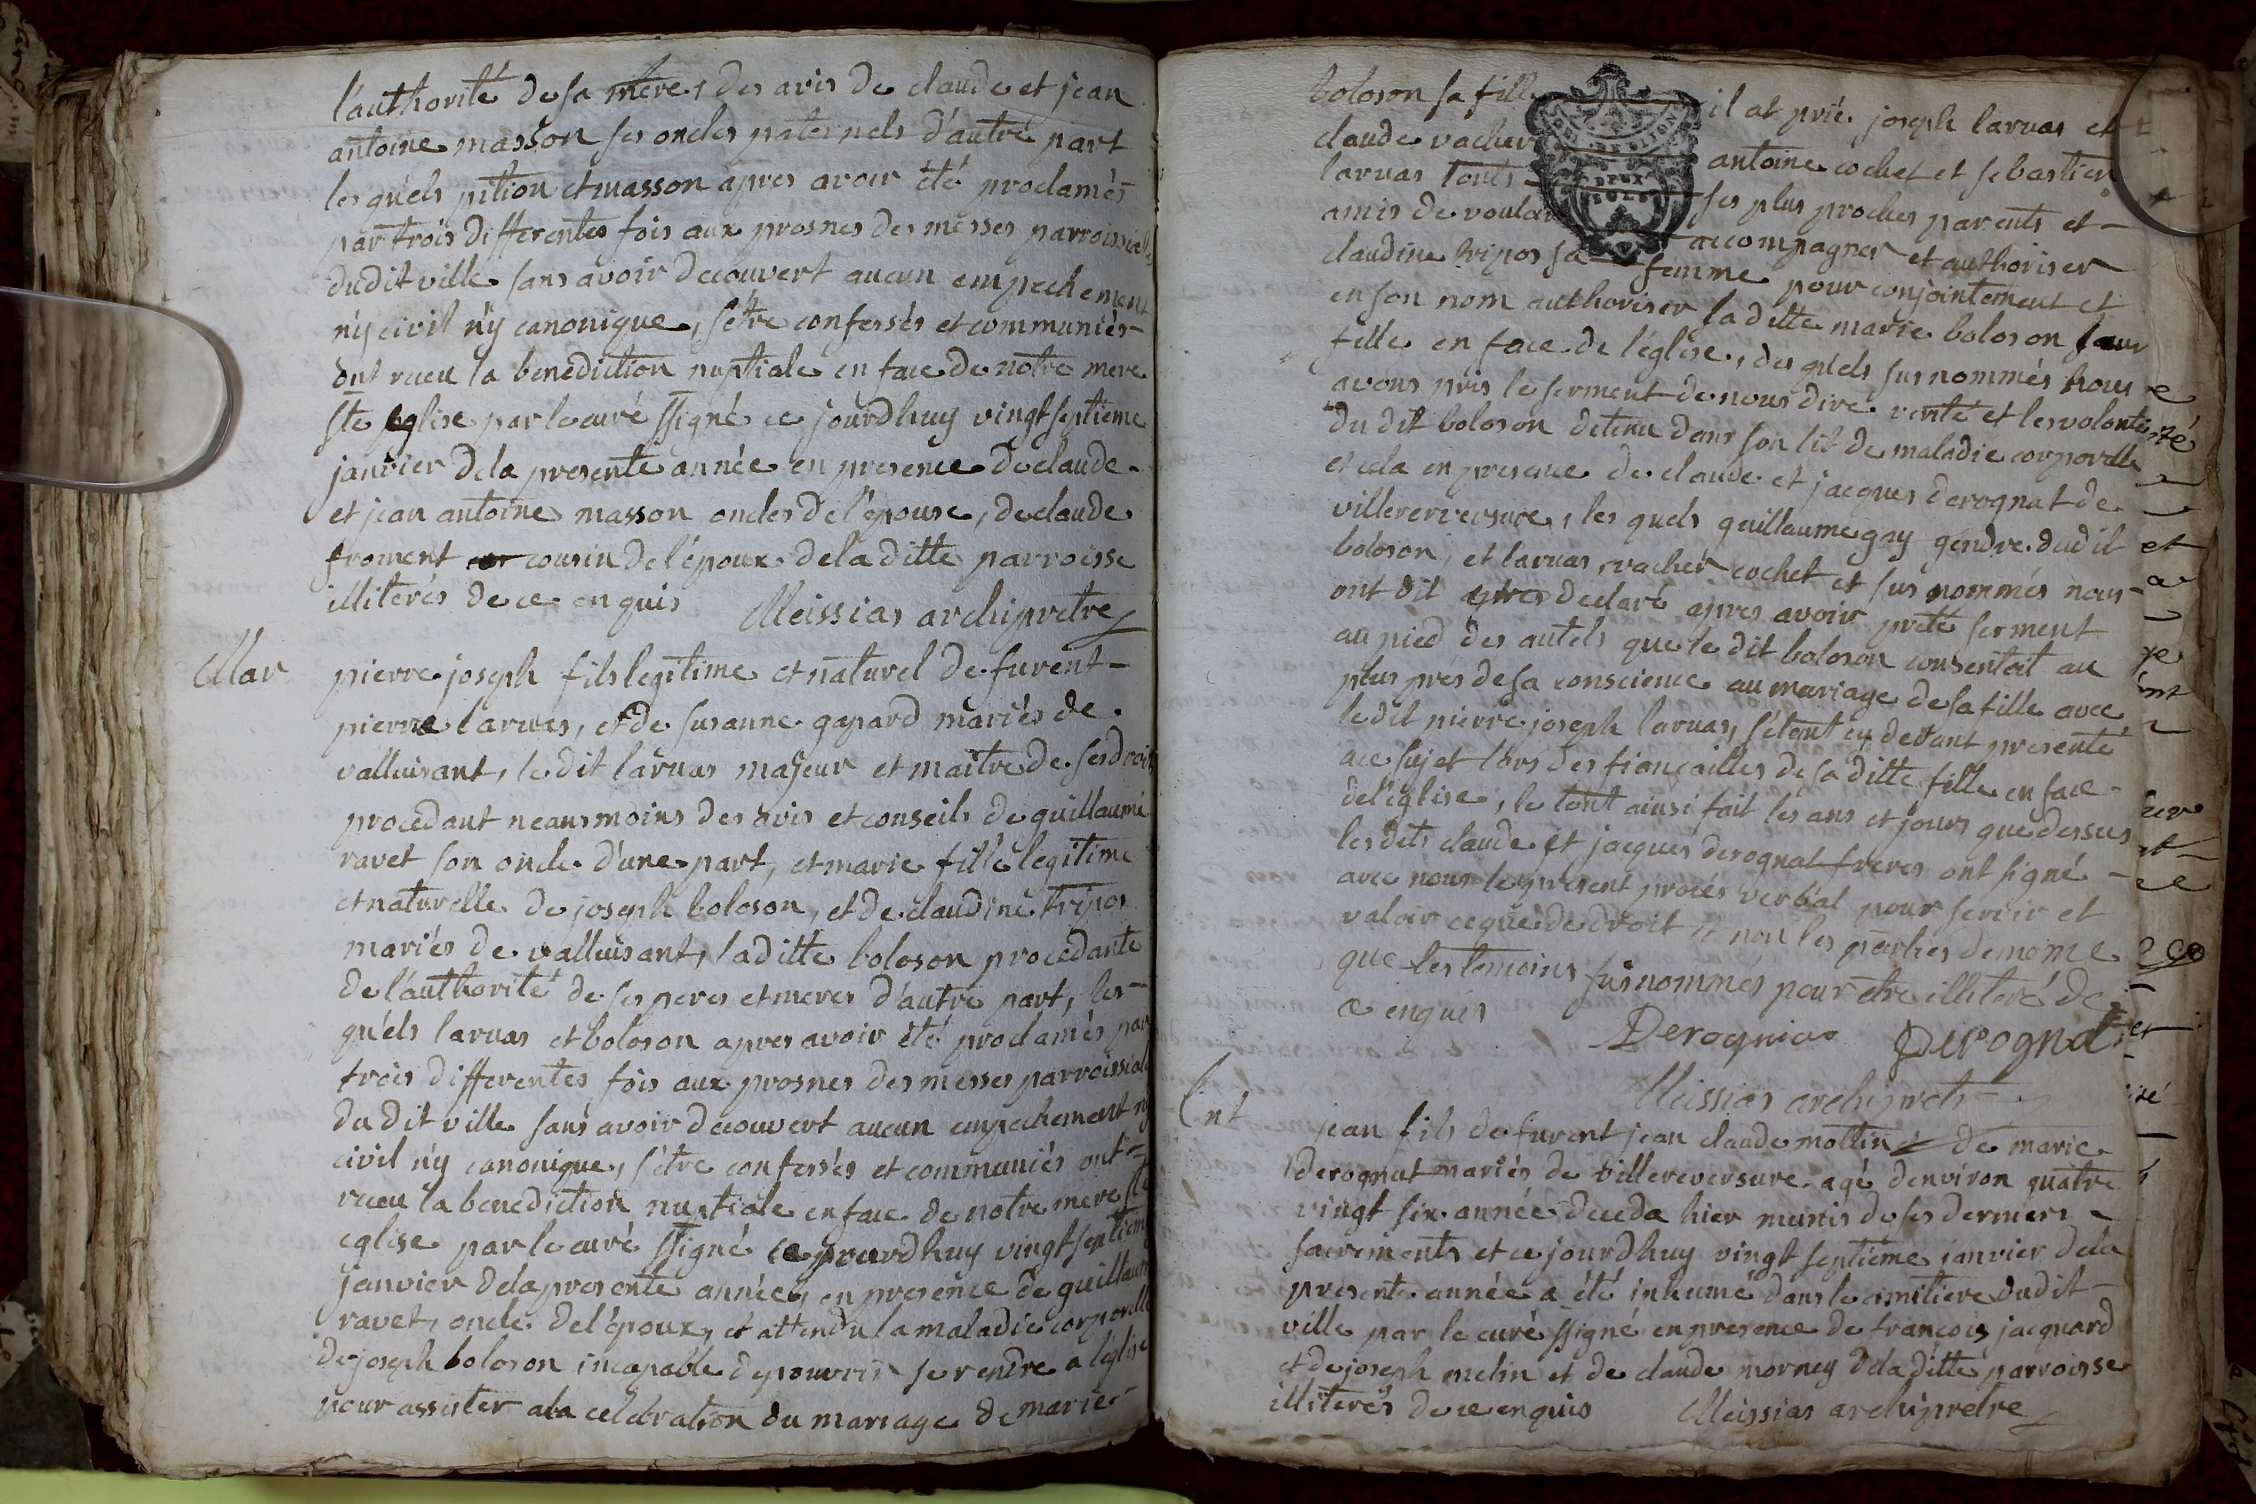 l'authorité de sa mere, des avis de claude et jean
antoine masson ses oncles paternels d'autre part
les quels pition et masson apres avoir été proclamés
par trois differentes fois aux prosnes des messes parroissiales
dudit ville sans avoir decouvert aucun empechement
n'y civil n'y canonique, s'etre confessés et communiés
ont receu la benediction nuptiale en face de notre mere
ste eglise par le curé ssigné ce jourdhuy vingt septieme
janvier dela presente année en presence de claude
et jean antoine masson oncles de l'epouse, de claude
froment cousin de l'époux de la ditte parroisse
illiterés de ce enquis Meissias archiprêtre
Mar
pierre joseph fils legitime et naturel de furent
pierre larvas, et de susanne gapard mariés de
valluisant, le dit larvas majeur et maitre de ses droits
procedant neansmoins des avis et conseils de guillaume
ravet son oncle d'une part, et marie fille legitime
et naturelle de joseph boloson, et de claudine tripos
mariés de valluisant, la ditte boloson procedante
de l'authorité de ses peres et meres d'autre part, les
quels larvas et boloson apres avoir été proclamés par
trois differentes fois aux prosnes des messes parroissiales
du dit ville sans avoir decouvert aucun empechement n'y
civil n'y canonique, s'etre confessés et communiés ont
receu la benediction nuptiale en face de notre mere ste
eglise par le curé ssigné ce jourdhuy vingt septieme
janvier dela presente année, en presence de guillaume
ravet, oncle de l'epoux, et attendu la maladie corporelle
de joseph boloson incapable de pouvoir se rendre a l'eglise
pour assister a la celebration du mariage de marie
boloson sa fille il at prié joseph larvas et
claude vacher antoine cochet et sebastien
larvas touts ses plus proches parents et
amis de vouloir accompagner et authoriser
claudine tripos sa femme pour conjointement et
en son nom authoriser la ditte marie boloson leur
fille en face de l'église, des quels sus nommés nous
avons pris le serment de nous dire verité et les volontés
du dit boloson detenu dans son lit de maladie corporelle
et cela en presence de claude et jacques derognat de
villereversure, les quels guillaume gay gendre dudit
boloson, et larvas, vacher cochet et sus nommés nous
ont dit et declaré apres avoir preté serment
au pied des autels que le dit boloson consentoit au
plus prés de sa conscience au mariage de sa fille avec
le dit pierre joseph larvas, s'étant cy devant presenté
a ce sujet lors des fiançailles de sa ditte fille en face
de l'église, le tout ainsi fait les ans et jours que dessus
les dits claude et jacques derognat freres ont signé
avec nous le present procés verbal pour servir et
valoir ce que de droit et non les parties de meme
que les temoins sus nommés pour être illiteré de
ce enquis Derognias Derognat
Meissias archiprêtre
Ent
jean fils de furent jean claude mottin et de marie
derognat mariés de villereversure agé d'environ quatre
vingt six année deceda hier munis de ses derniers
sacrements et ce jourdhuy vingt septieme janvier dela
presente année a été inhumé dans le cimitiere dudit
ville par le curé ssigné en presence de francois jacquard
et de joseph melin et de claude morney dela ditte parroisse
illiterés de ce enquis Meissias archiprêtre